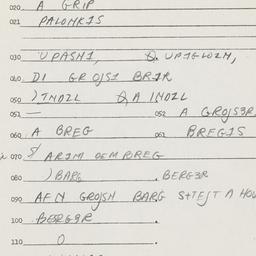 020. A GRIP
021 PALONKIS
030 UPASHI, Q. UPIGLOIH,
040 DI GROJSI BRIK
050 )INDZL Q A INDZL
051 — 052 A GROJS3R
060 A BREG 061 BREGIS
070 ARIM DEM BREG
080 )BARG . BERG3R
090 AFN GROJSN BARG STEJT A HOU
100 BERG9R .
110 O .